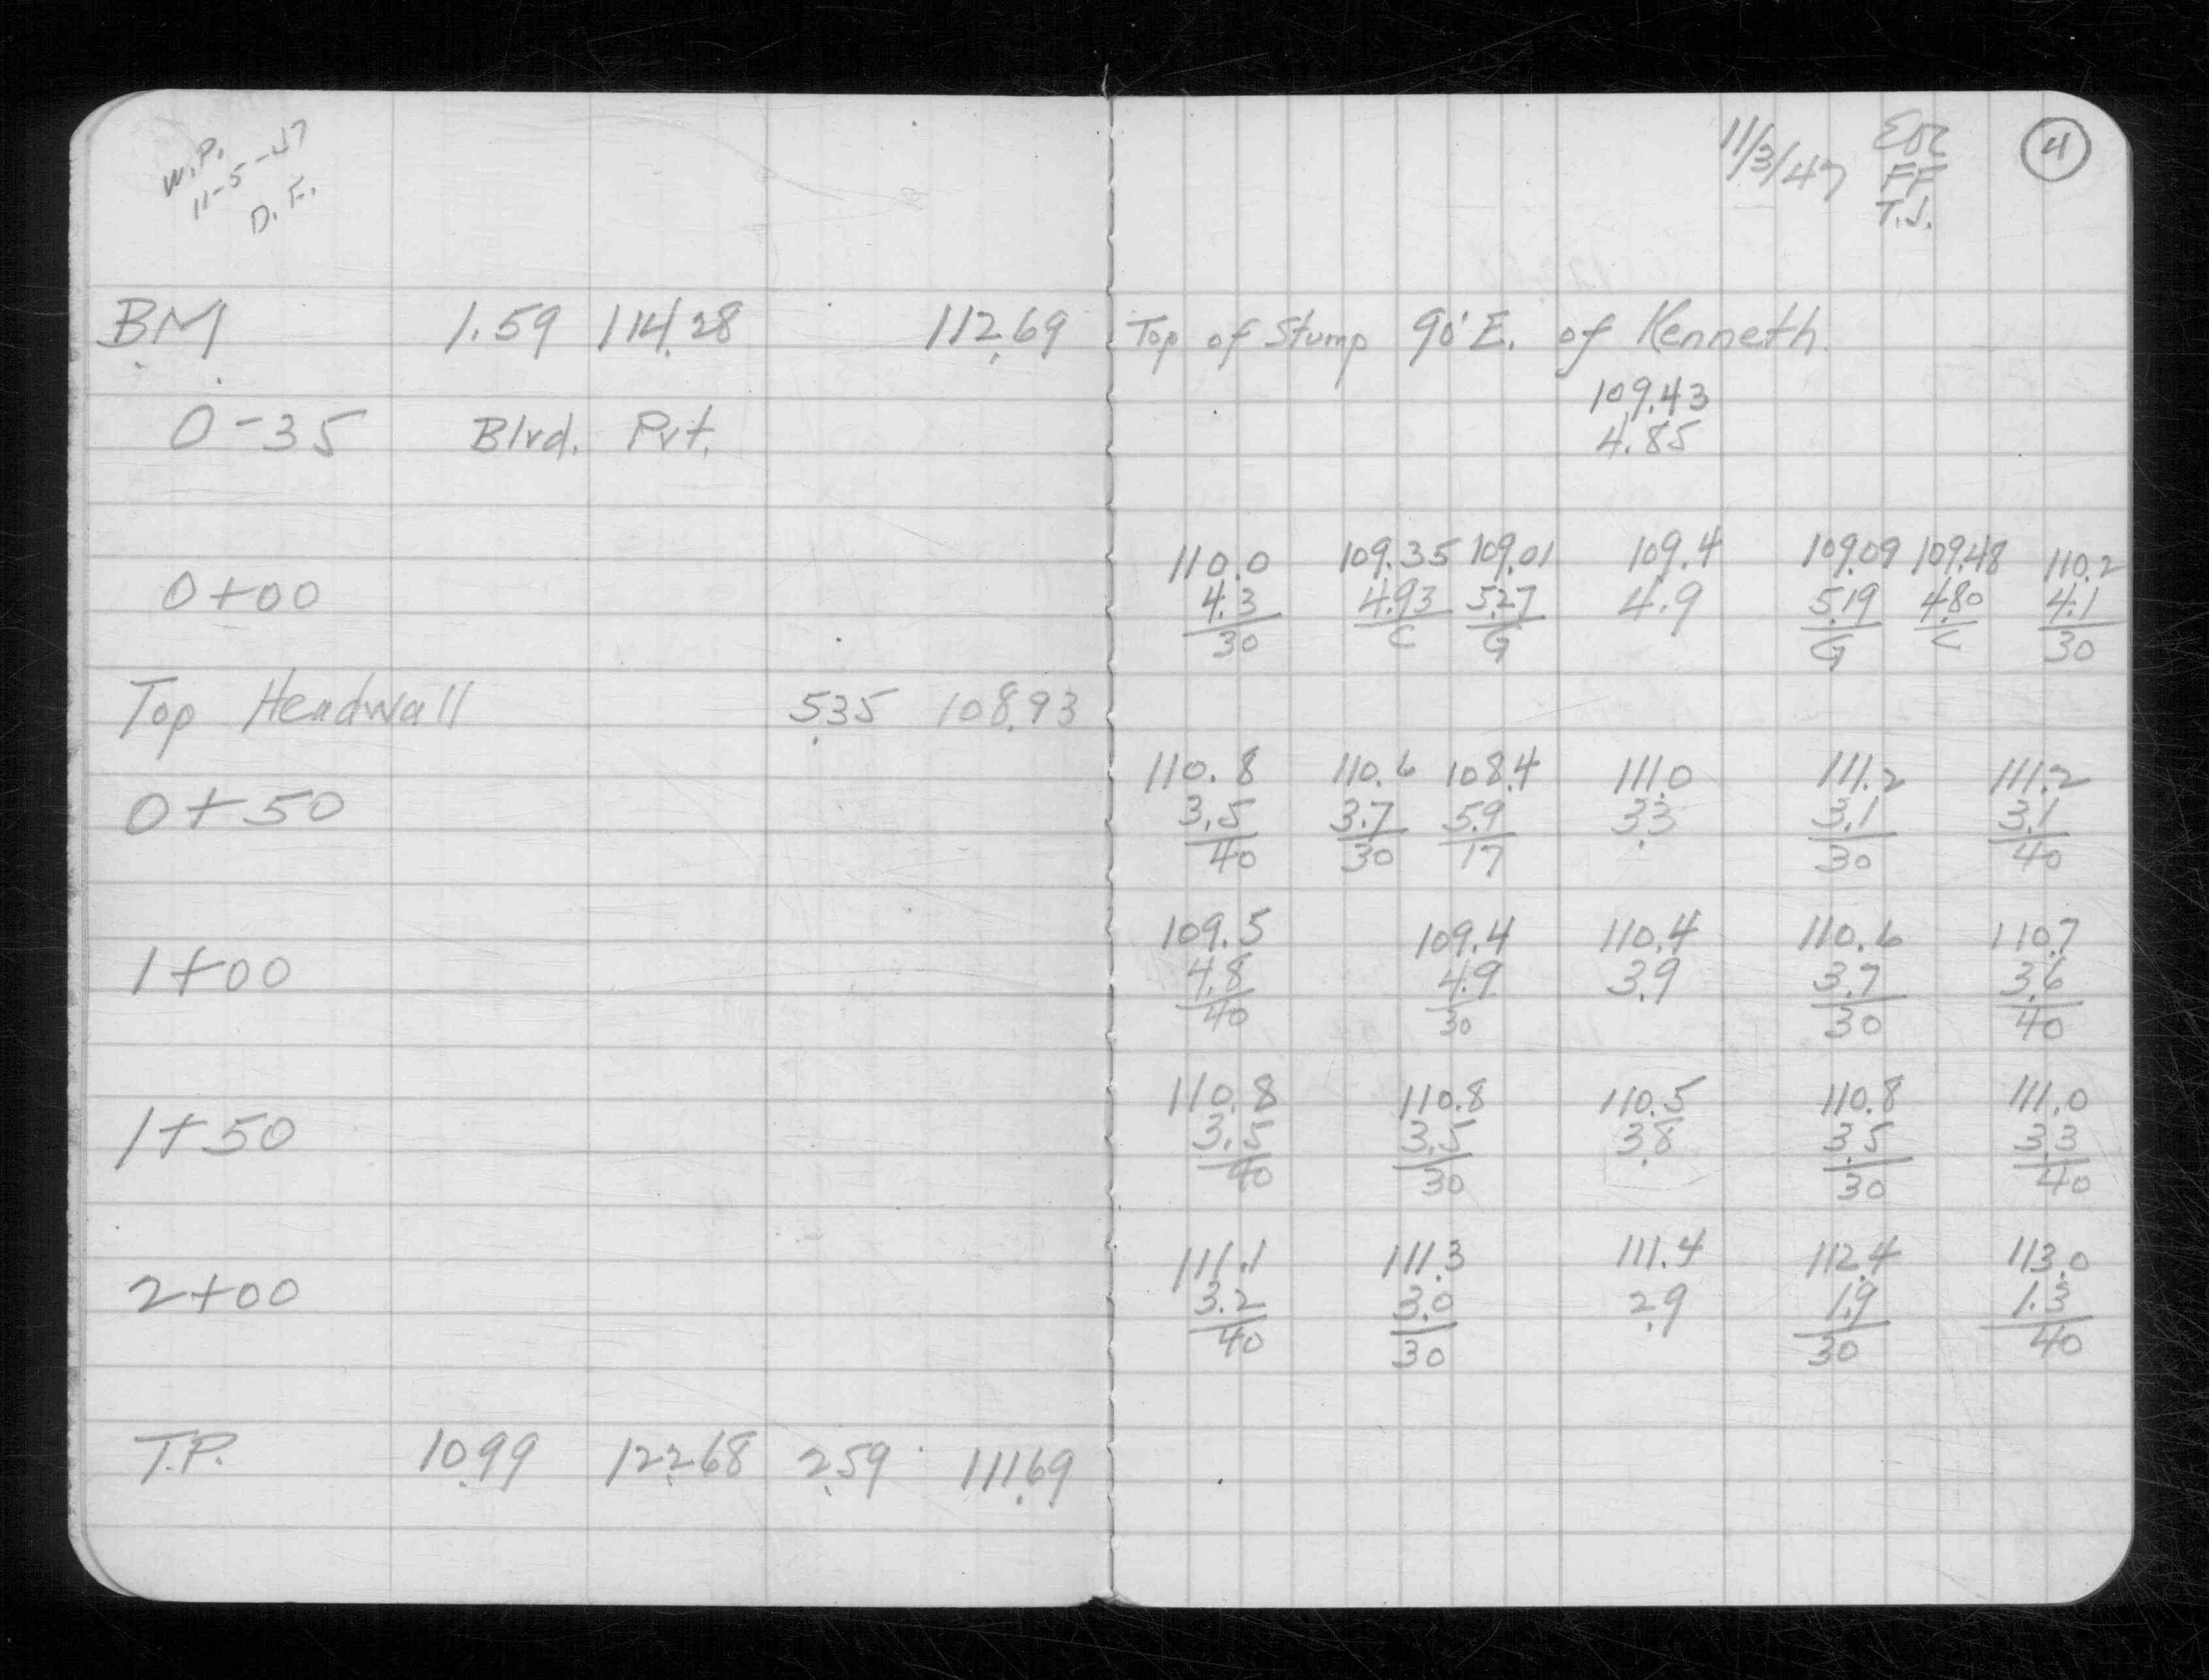 W.P.
11-5-47
D.F.
BM 1.59 114.28 112.69
0-35 Blvd. Pvt.
0+00
Top Headwall 5.35 108.93
0+50
1+00
1+50
2+00
T.P. 10.99 122.68 2.59 111.69
11/3/47
FF
T.J.
4
Top of Stump 90' E. of Kenneth
109.43
4.85
110.0 109.35 109.01 109.4 109.09 109.48 110.2
4.3 4.93 5.27 4.9 5.19 4.80 4.1
30 C G G C 30
110.8 110.6 108.4 111.0 111.2 111.2
3.5 3.7 5.9 3.3 3.1 3.1
40 30 17 30 40
109.5 109.4 110.4 110.6 110.7
4.8 4.9 3.9 3.7 3.6
40 30 30 40
110.8 110.8 110.5 110.8 111.0
3.5 3.5 3.8 3.5 3.3
40 30 30 40
111.1 111.3 111.4 112.4 113.0
3.2 3.0 2.9 1.9 1.3
40 30 30 40